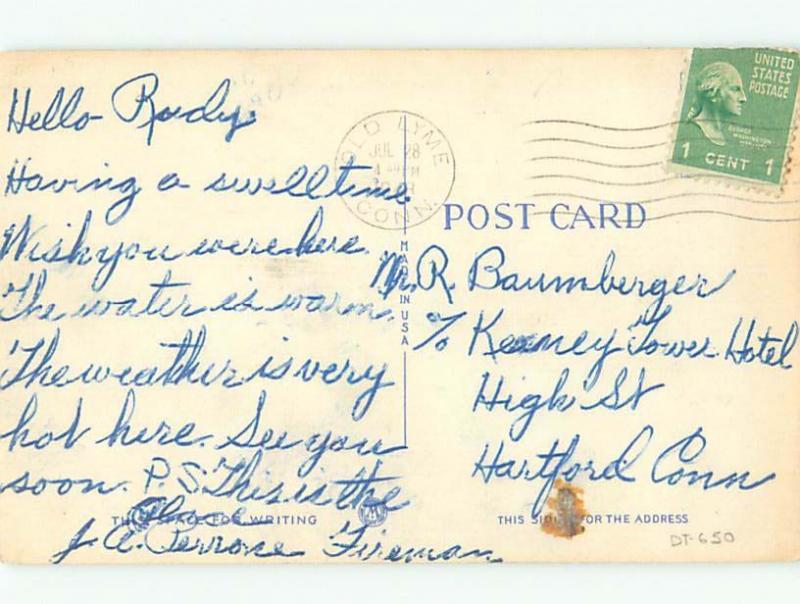 Hello Rudy
Having a swell time
Wish you were here.
The water is warm.
The weather is very
hot here. See you
soon. P.S. This is the
place
J. A. Perrone Fireman
THIS SPACE FOR WRITING
OLD LYME
JUL 28
CONN.
UNITED
STATES
POSTAGE
GEORGE
WASHINGTON
1 CENT 1
POST CARD
MADE IN USA
Mr. R. Baumberger
% Keeney Tower Hotel
High St
Hartford Conn
THIS SIDE FOR THE ADDRESS
DT-650